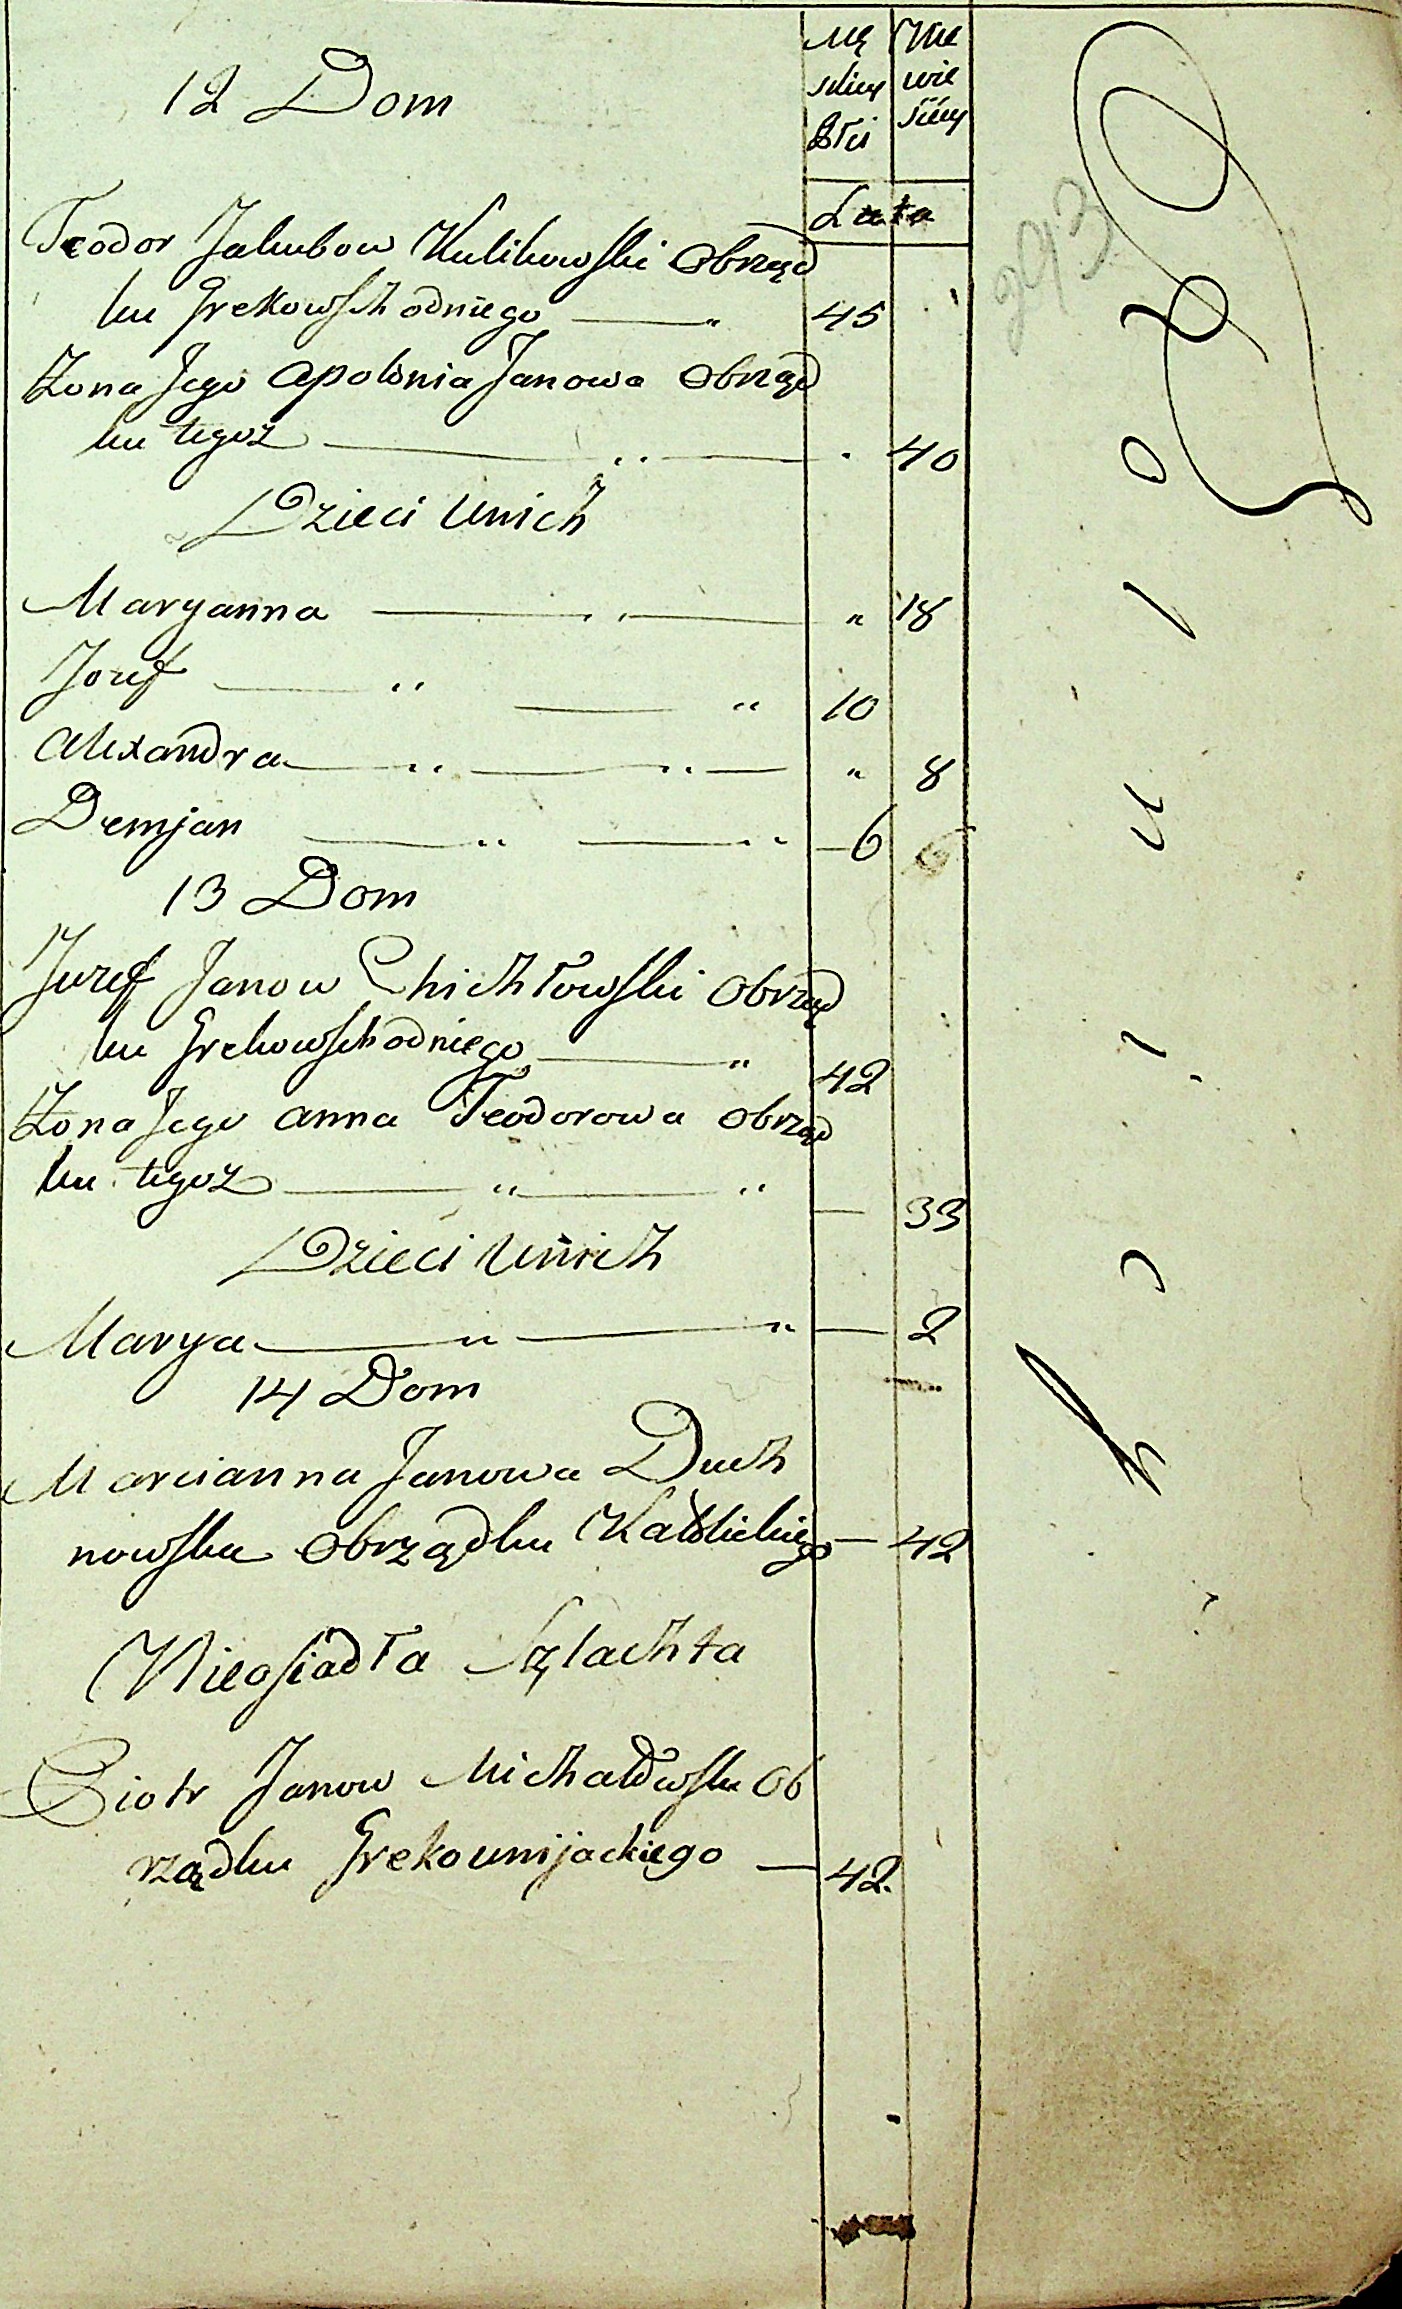 12 Dom
Mę Nie
skiey wie
Płci ściey
Lata
Teodor Jakubow Kulikowski Obrząd
ku Grekowschodniego — " 45
Żona Jego Apolonia Janowa Obrząd
ku tegoż — " — 40
Dzieci Unich
Maryanna — " — " 18
Jozef — " — " 10
Alexandra — " — " — " 8
Demjan — " — " — 6
13 Dom
Juzef Janow Chichłowski Obrząd
ku Grekowschodniego — " 42
Żona Jego Anna Teodorowa Obrząd
ku tegoż — " — " — 33
Dzieci Unich
Marya — " — " — 2
14 Dom
Marcianna Janowa Duch
nowska Obrządku Katolickiego — 42
Nieosiadła Szlachta
Piotr Janow Michałowski Ob
rządku Grekounijackiego — 42.
293